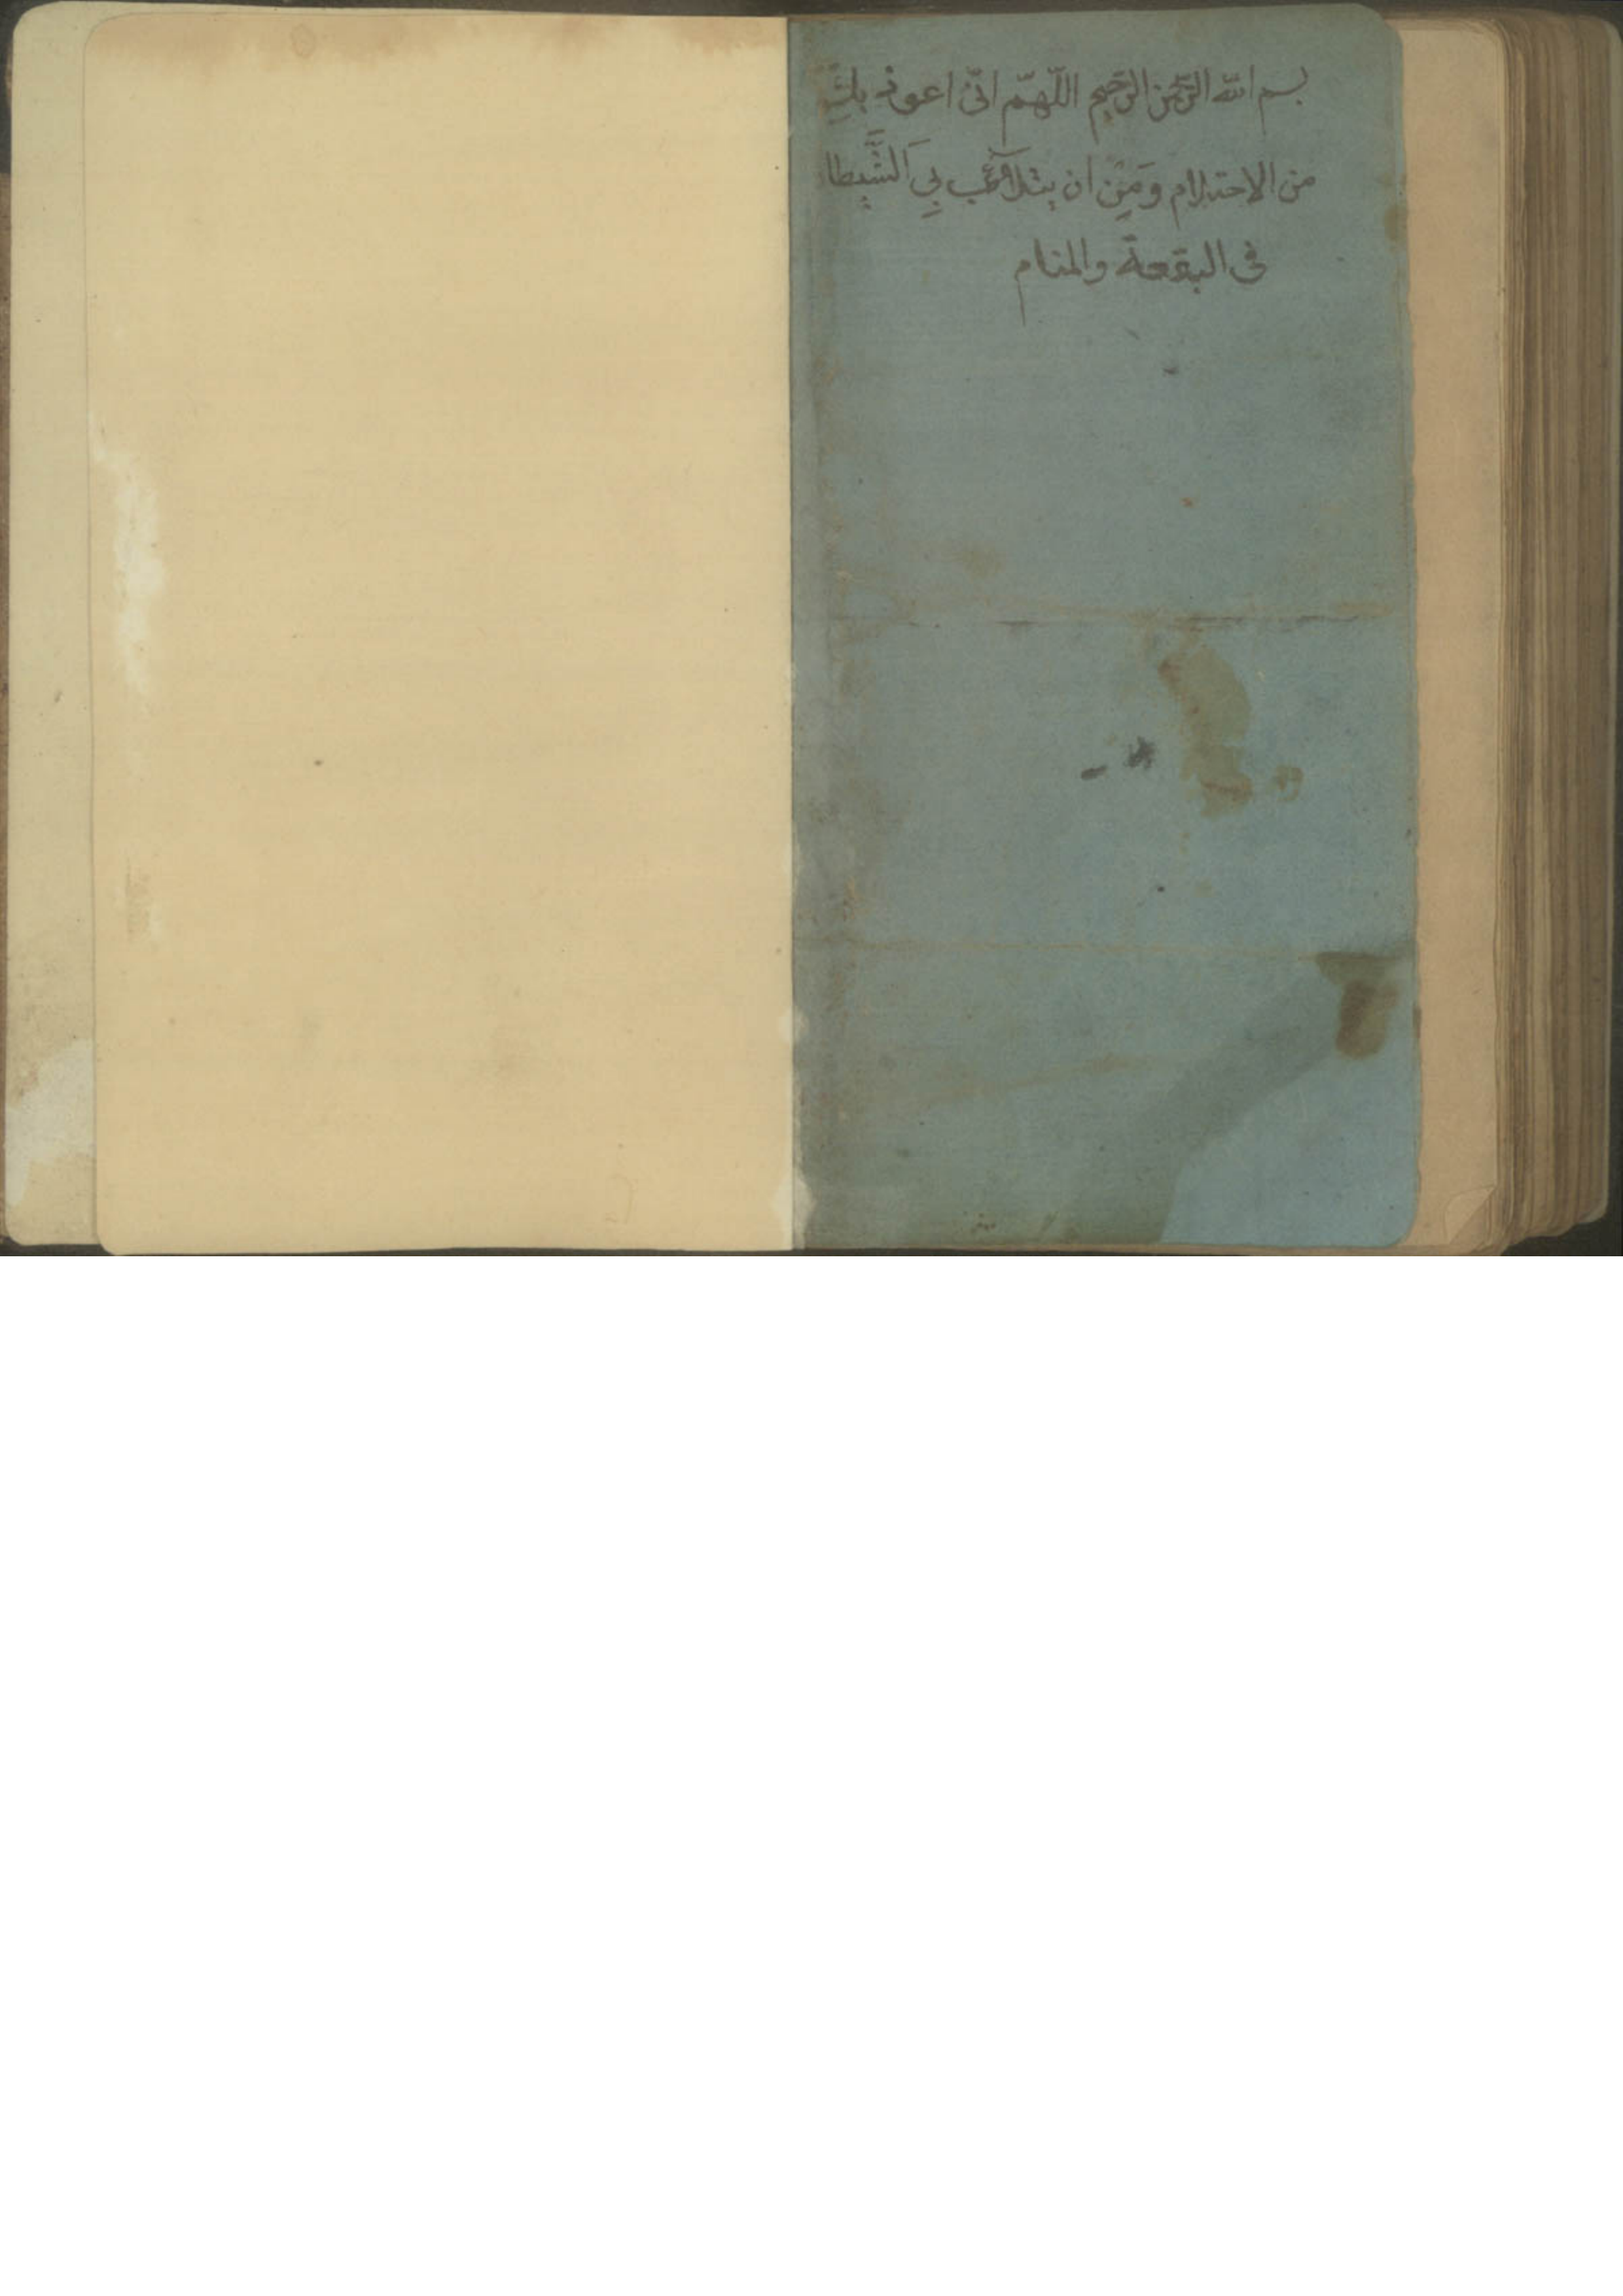 بسم الله الرّحمن الرّحيم اللّهمّ انّى اعوذ بك
من الاحتلام ومن ان يتلاعب بي الشَّيطا
فى اليقعة والمنام